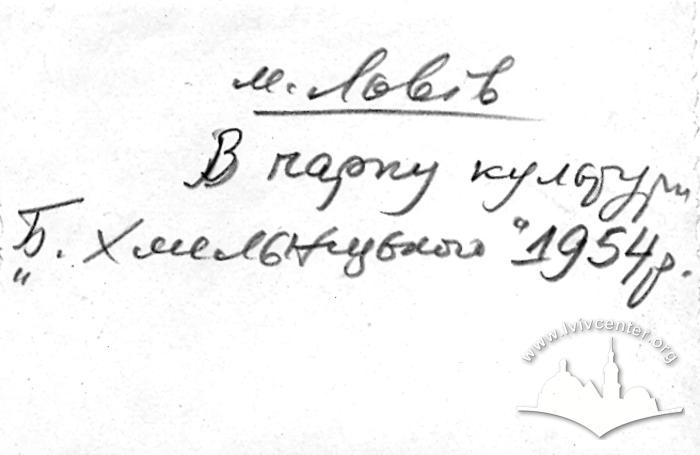 м. Львів
В парку культури
„Б. Хмельницького“ 1954р.
www.lvivcenter.org